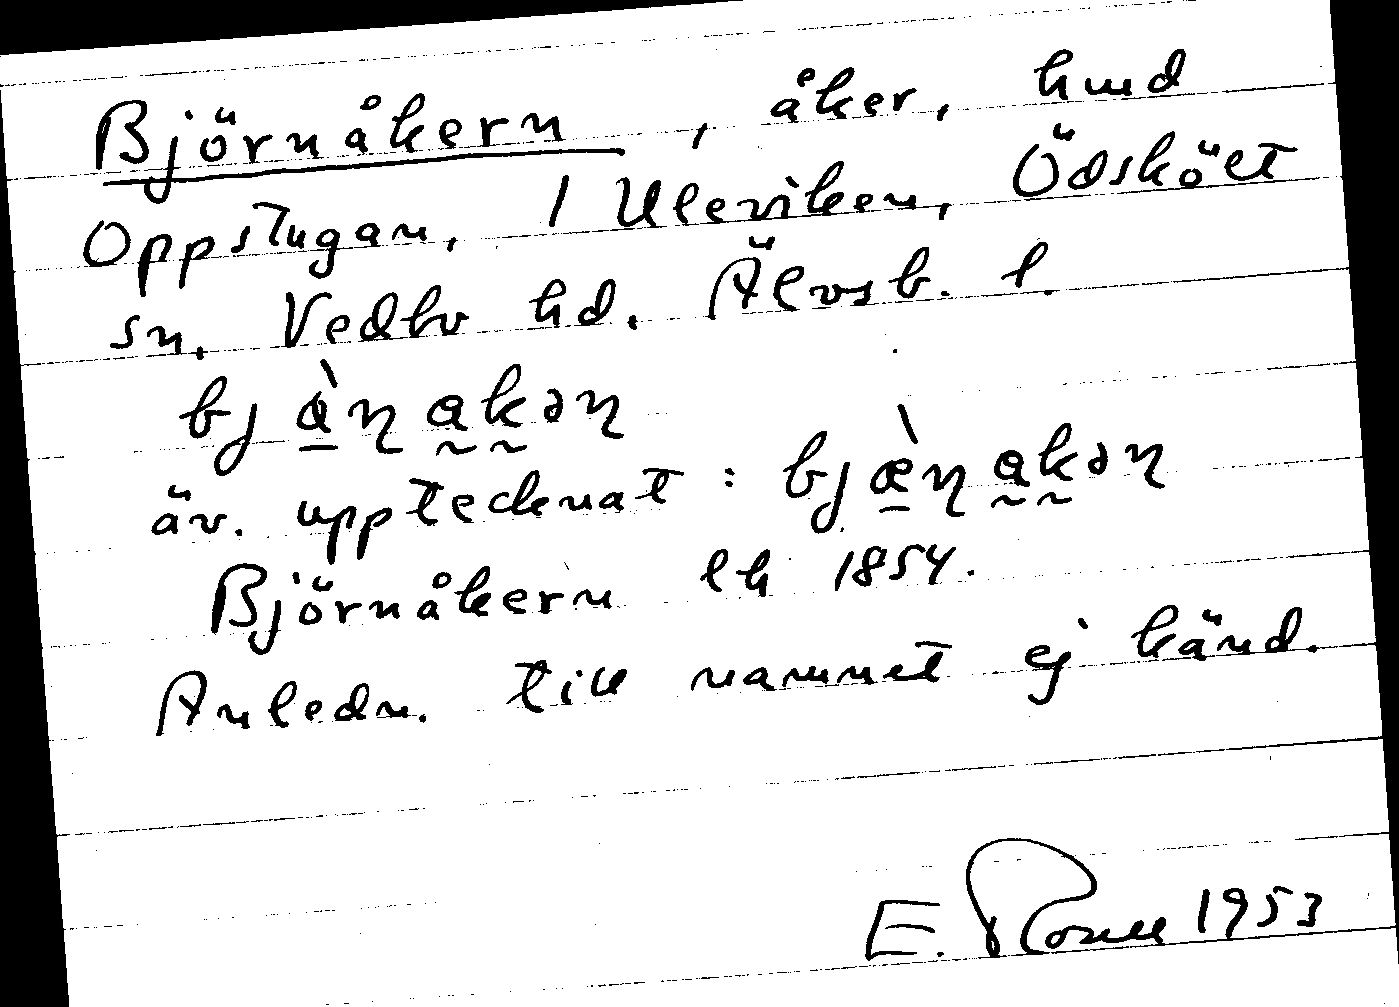 Björnåkern, åker, hmd
Oppstugan, 1 Uleviken, Ödsköët
sn. Vedbo hd. Älvsb. l.
bj ὰ̱ɳ a̰k̰əɳ
äv. upptecknat: bj æ̱̀ɳ a̰k̰əɳ
Björnåkern lh 1854.
Anledn. till namnet ej känd.
E. 1953